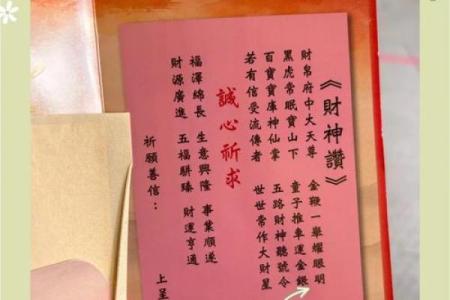 《財神讚》
財帛府中大天尊　金鞭一舉耀眼明
黑虎常眠寶山下　童子推車運金銀
百寶寶庫神仙掌　五路財神聽號令
若有信受流傳者　世世常作大財星
誠心祈求
福澤綿長　生意興隆　事業順遂
財源廣進　五福駢臻　財運亨通
祈願善信：
上呈